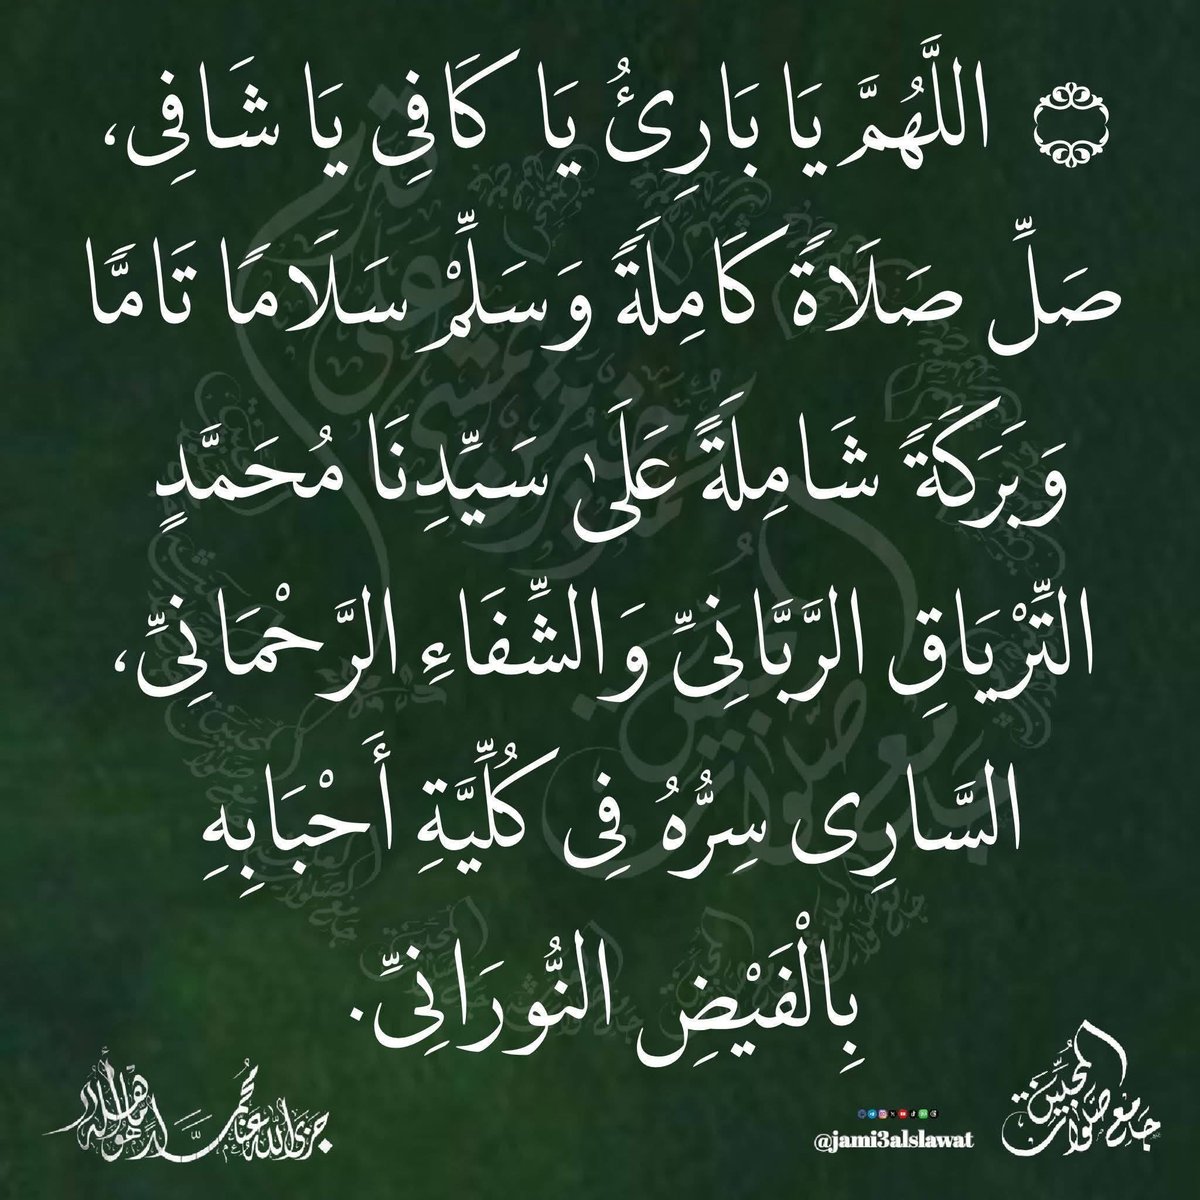 اللَّهُمَّ يَا بَارِئُ يَا كَافِي يَا شَافِي،
صَلِّ صَلَاةً كَامِلَةً وَسَلِّمْ سَلَامًا تَامًّا
وَبَرَكَةً شَامِلَةً عَلَى سَيِّدِنَا مُحَمَّدٍ
التِّرْيَاقِ الرَّبَّانِيِّ وَالشِّفَاءِ الرَّحْمَانِيِّ،
السَّارِي سِرُّهُ فِي كُلِّيَّةِ أَحْبَابِهِ
بِالْفَيْضِ النُّورَانِيِّ.
جامع صلوات المحبين
@jami3alslawat
جزى الله عنا محمدا ما هو أهله